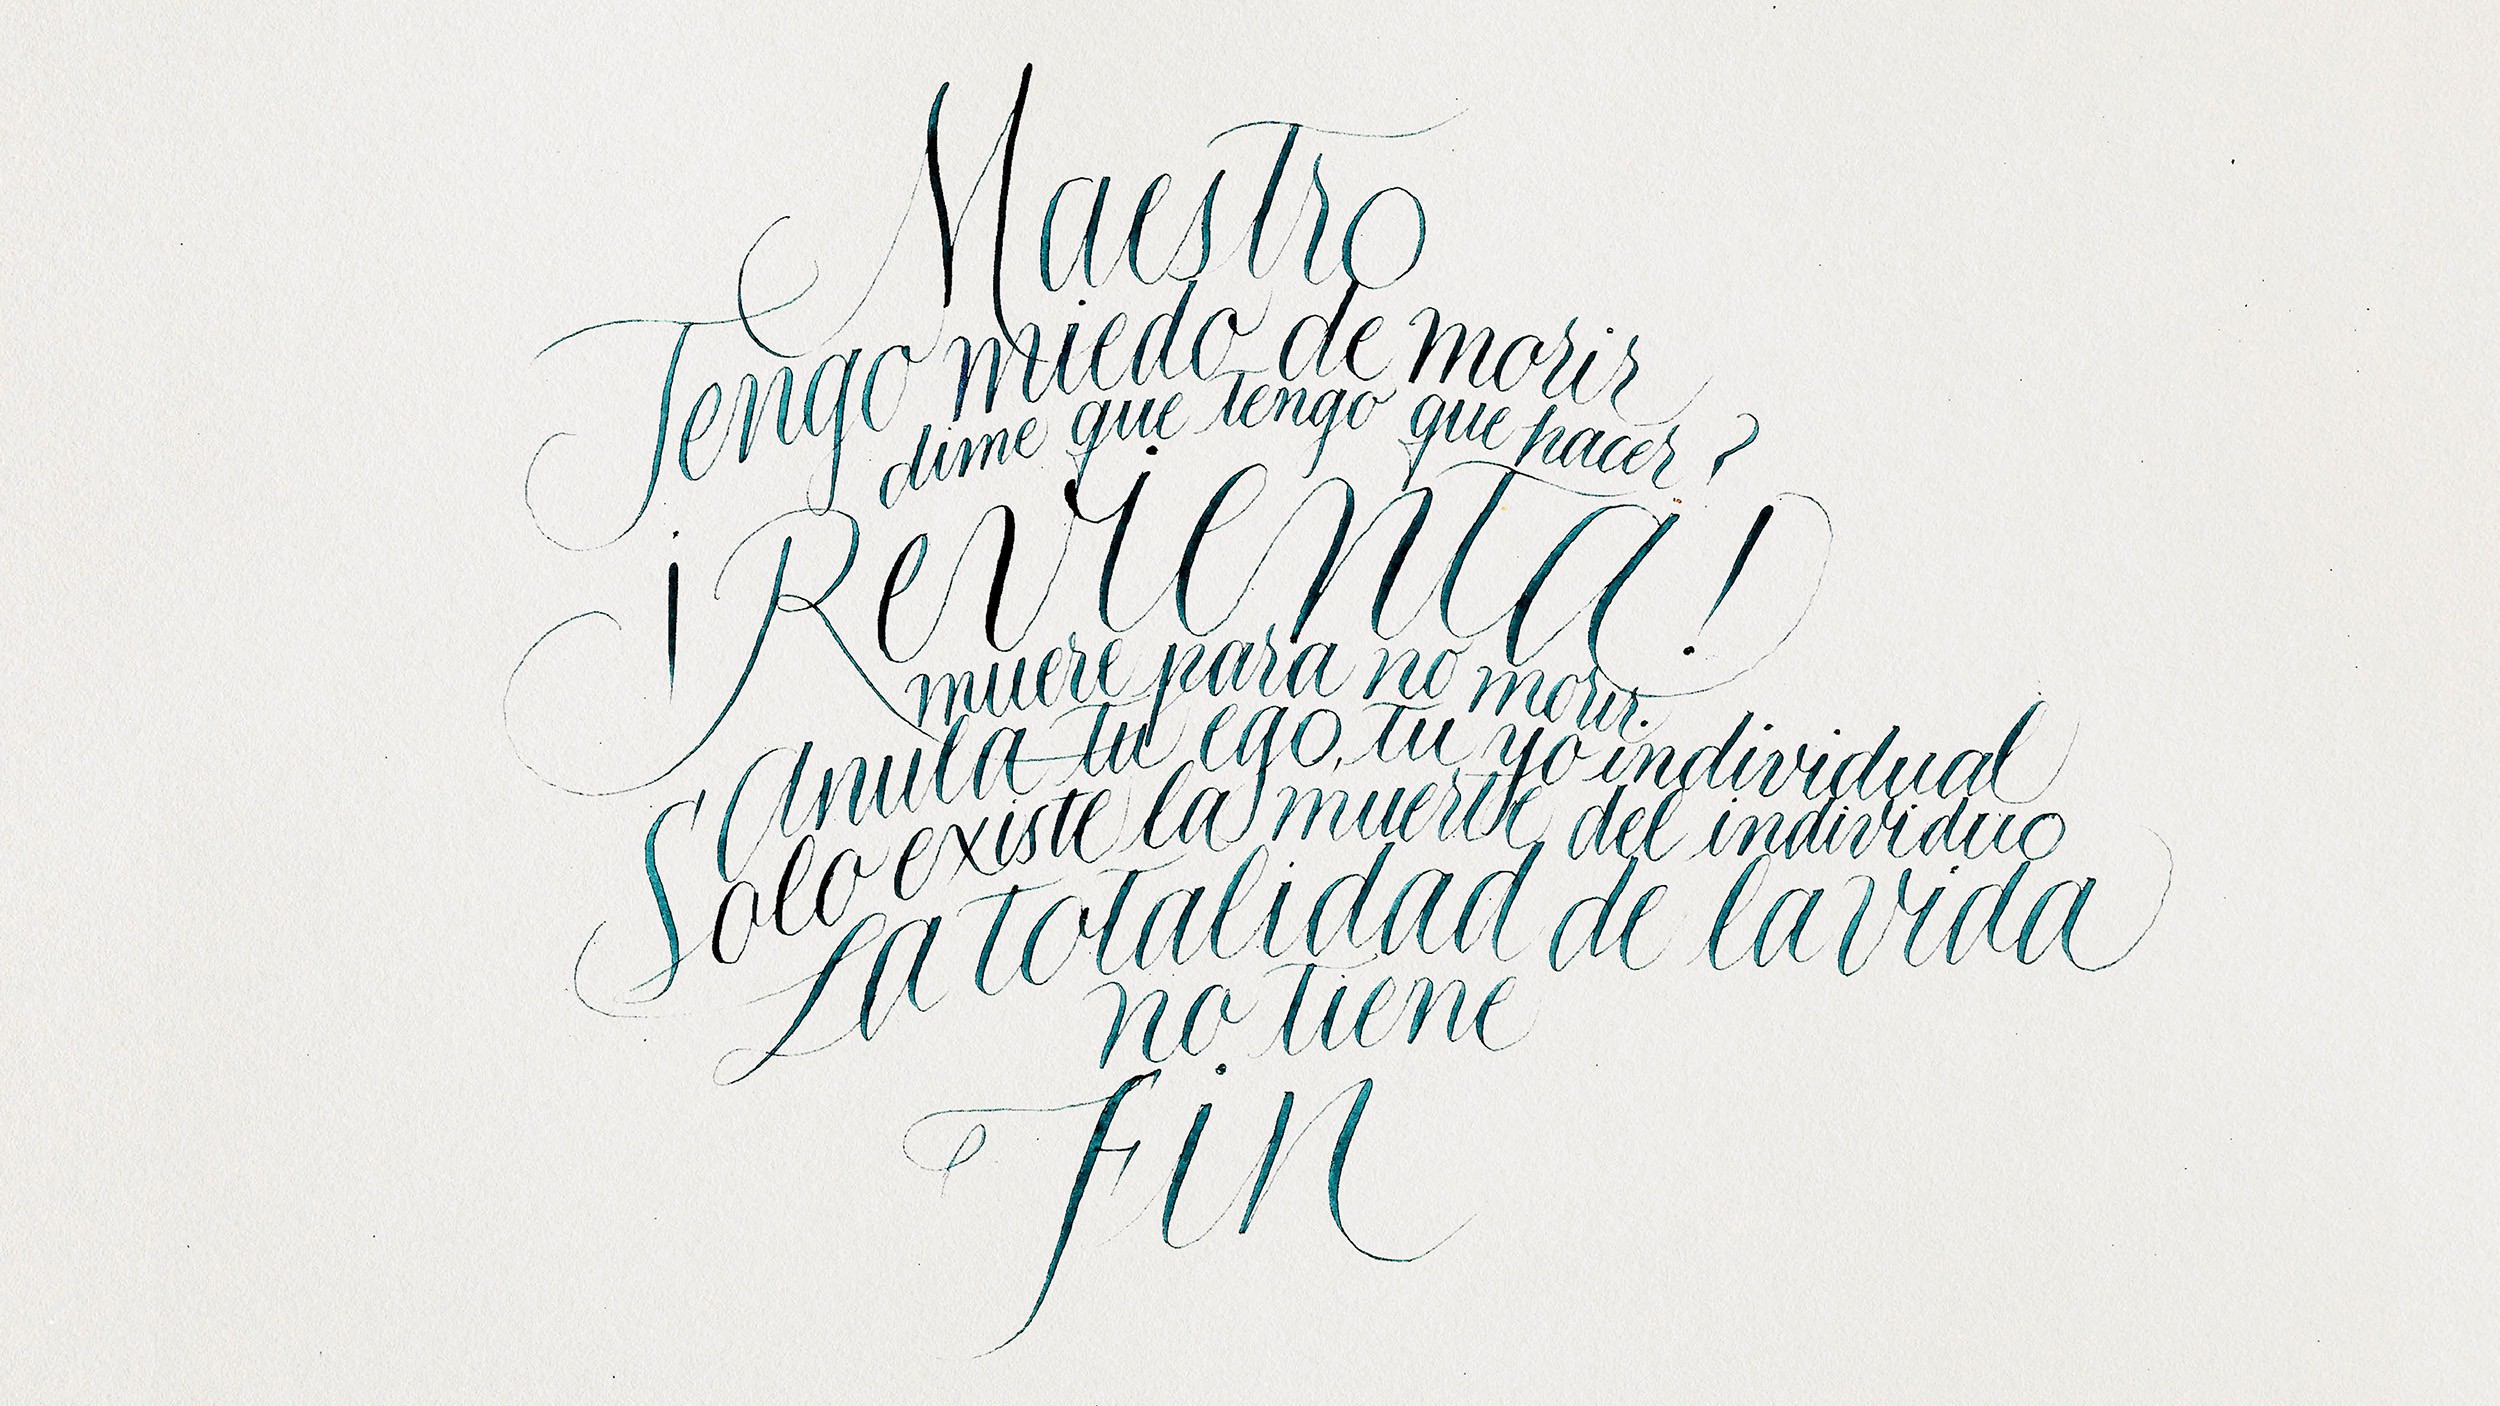 Maestro
Tengo miedo de morir
dime que tengo que hacer?
¡Revienta!
muere para no morir.
Anula tu ego, tu yo individual
Solo existe la muerte del individuo
La totalidad de la vida
no tiene
fin